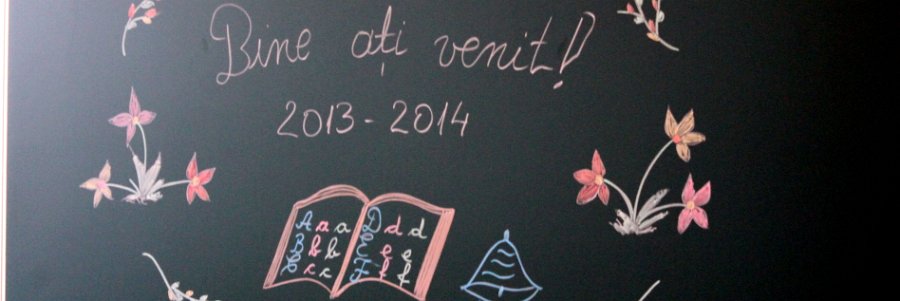 Bine ați venit!
2013 - 2014
A a a D d d
B b b E e e
C c c F f f